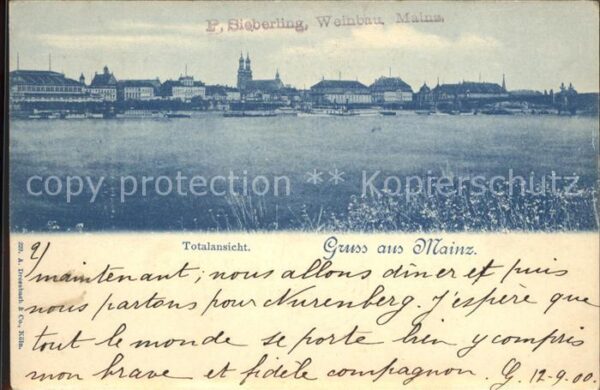 P. Sieberling, Weinbau, Mainz.
copy protection ** Kopierschutz
Totalansicht. Gruss aus Mainz.
2/
maintenant; nous allons dîner et puis
nous partons pour Nurenberg. J'espère que
tout le monde se porte bien y compris
mon brave et fidèle compagnon. G. 12-9.00.
A. Dressbach & Co., Köln.